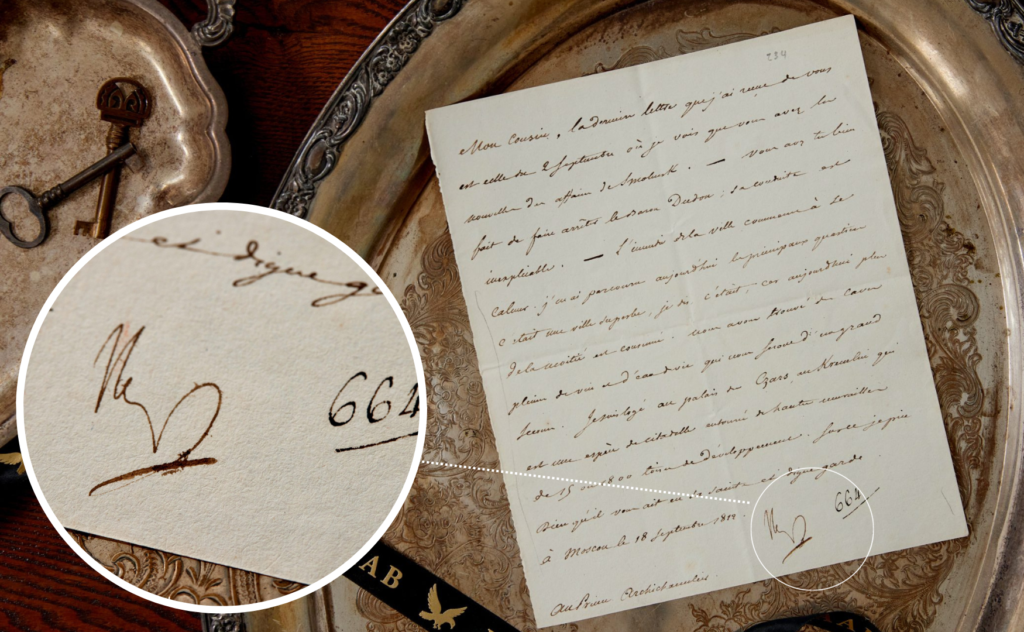 234
Mon Cousin, la derniere lettre que j'ai reçue de vous
est celle du 2 Septembre où je vois que vous avez les
nouvelles des affaires de Smolensk. — Vous avez très bien
fait de faire arrêter le Baron Dudon; sa conduite est
inexplicable. — L'incendie de la ville commence à se
Calmer. j'ai parcouru aujourd'hui les principaux quartiers
c'était une ville superbe, je dis c'était, car aujourd'hui plus
de la moitié est consumée. nous avons trouvé des caves
pleines de vin et d'eau de vie qui nous seront d'un grand
secours. Je suis logé au palais des Czars, au Kremlin qui
est une espèce de citadelle entourée de hautes murailles
de 15 ou 1800 toises de développement. Sur ce je prie
Dieu qu'il vous ait en sa sainte et digne garde.
à Moscou le 18 Septembre 1812.
664
Au Prince Archichancelier.
et digne ga
664
AB